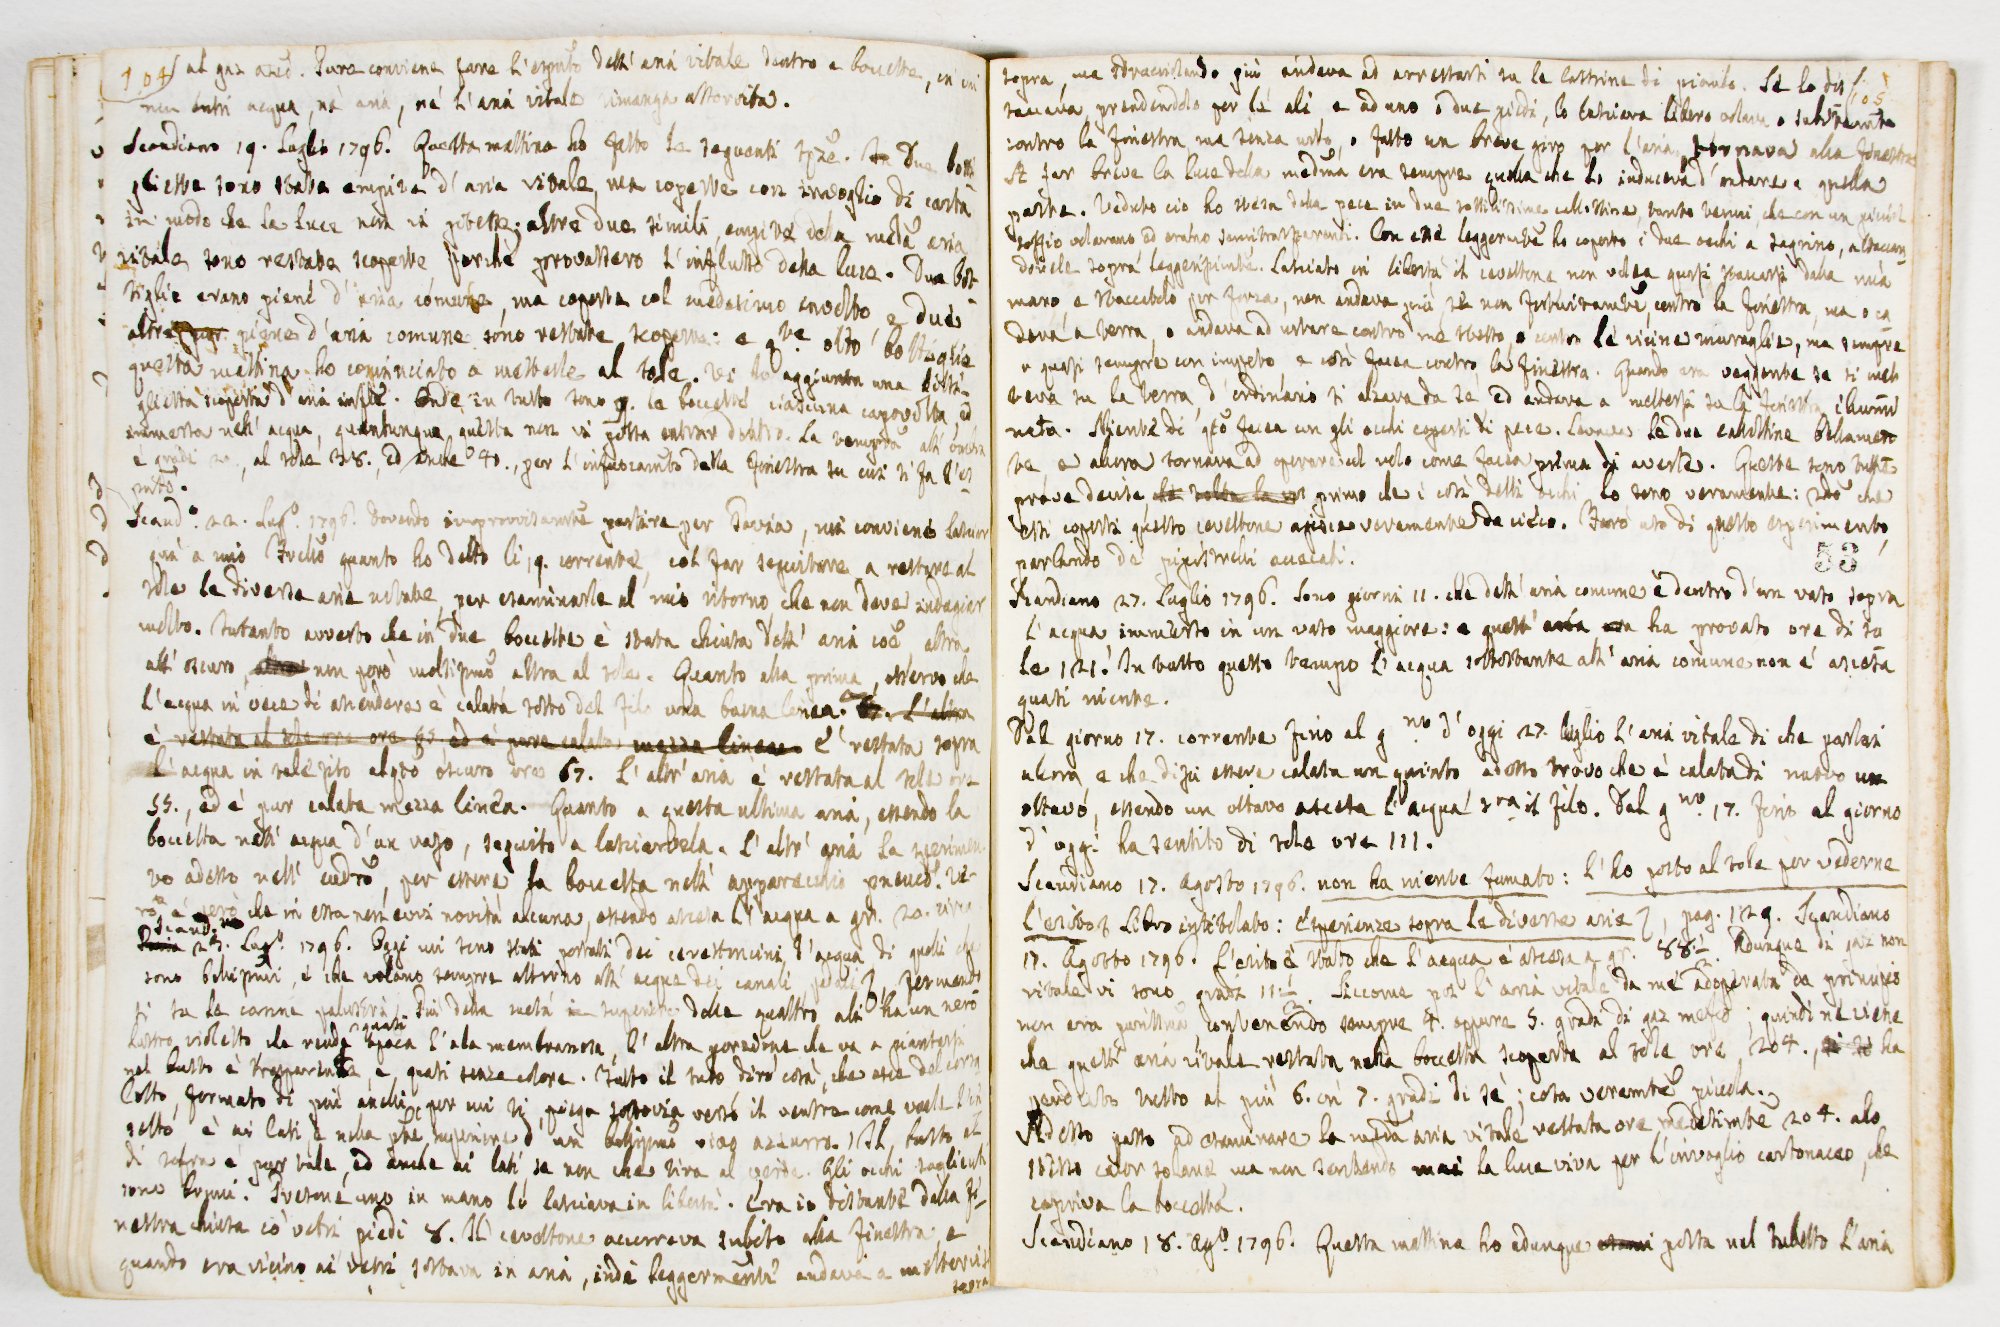 104
al gaz azoto. Pure conviene fare l'espmto dell'aria vitale dentro a boccette, in cui
non entri acqua, nè aria, né l'aria vitale rimanga assorbita.
Scandiano 19. Luglio 1796. Questa mattina ho fatto le seguenti spze. Due botti
gliette sono state empite d'aria vitale, ma coperte con invoglio di carta
in modo che la luce non vi potesse; altre due simili, empite della medma aria
vitale sono restate scoperte perchè provassero l'influsso della luce. Due bot
tiglie erano piene d'aria comune, ma coperte col medesimo involto e due
altre piene d'aria comune sono restate scoperte: e qte otto bottiglie
questa mattina ho cominciato a metterle al sole. Vi ho aggiunta una botti
glietta scoperta d'aria. Onde in tutto sono 9. le boccette ciascuna capovolta, ed
immersa nell'acqua, quantunque questa non vi possa entrar dentro. La tempra all'ombra
è gradi 20, al sole 38. ed anche 40., per l'infuocamto della finestra su cui si fa l'es
pmto.
Scando. 22. Lugo. 1796. Dovendo improvvisamte partire per Pavia, mi conviene lasciar
quà a mio quanto ho detto li 19. corrente, col far seguitare a restare al
sole le diverse arie notate, per esaminarle al mio ritorno che non deve indugiar
molto. Intanto avverto che in due boccette è stata chiusa dell'aria coe, altra
all'oscuro non però moltissmo altra al sole. Quanto alla prima, osservo che
l'acqua in vece di ascendere è calata sotto del filo una buona linea. L'altra
è restata al sole ore 55, ed è pure calata mezza linea. E' restata sopra
l'acqua in tale sito alqto oscuro ore 67. L'altr'aria è restata al sole ore
55., ed è pur calata mezza linea. Quanto a questa ultima aria, essendo la
boccetta nell'acqua d'un vaso, seguito a lasciarvela. L'altr'aria la sperimen
to adesso nell', per essere la boccetta nell'apparecchio pneuco. Ve
ro è però che in essa non evvi novità alcuna, essendo ascesa l'acqua a gr. 20. circa
Scando.
23. Lugo. 1796. Oggi mi sono stati portati dei cevettoncini d'acqua di quelli che
sono bellissmi, e che volano sempre attorno all'acque dei canali, fermando
si su le canne palustri. Più della metà delle quattro ali ha un nero
lustro violetto che rende quasi opaca l'ala membranosa, l'altra porzione che va a piantarsi
nel busto è trasparente, e quasi senza colore. Tutto il suo dirò così, che esce dal corsa
letto, formato di più anelli per cui si piega sottovia verso il ventre come vuole l'in
setto è ai lati e nella pte superiore d'un bellissmo azzurro. Il busto al
di sopra è pur tale, ed anche ai lati se non che tira al verde. Gli occhi saglienti
sono bruni. Presone uno in mano lo lasciava in libertà. Era io distante dalla fi-
nestra chiusa co' vetri piedi 8. Il cevettone accorreva subito alla finestra, e
quando era vicino ai vetri sostava in aria, indi leggermente andava a mettervisi
sopra
105
sopra, ma sdrucciolando giù andava ad arrestarsi su le lastrine di piombo. Se lo dis
taccava, prendendolo per le ali e ad uno o due piedi, lo lasciava libero volava o subitamte
contro la finestra, ma senza urto, o fatto un breve giro per l'aria tornava alla finestra
A far breve la luce della medma era sempre quella che lo induceva d'andare a quella
parte. Veduto ciò ho stesa della pece in due sottilissime callottine, tanto tenui, che con un piccol
soffio volavano ed erano semitrasparenti. Con esse leggermte ho coperto i due occhi a segnino, attaccan
dovele sopra leggerissimte. Lasciato in libertà il cevettone non volea quasi staccarsi dalla mia
mano e staccatolo per forza, non andava più se non fortuitamte, contro la finestra, ma o ca
deva a terra, o andava ad urtare contro me stesso o contro le vicine muraglie, ma sempre
o quasi sempre con impeto e così facea contro la finestra. Quando era veggente se si met
teva su la terra, d'ordinario si alzava da se ed andava a mettersi su la finestra illumi
nata. Niente di qto facea con gli occhi coperti di pece. Levate le due callottine bellamen
te e allora tornava ad operare col volo come facea prima di averle. Queste sono tutte
prove decise primo che i così detti occhi lo sono veramente: sdo che
essi coperti questo cevettone agisce veramente da cieco. Farò uso di questo esperimento,
parlando de' pipistrelli accecati.
53
Scandiano 27. Luglio 1796. Sono giorni 11. che dell'aria comune è dentro d'un vaso sopra
l'acqua immerso in un vaso maggiore: e quest'aria ha provato ore di so
le 121. In tutto questo tempo l'acqua sottostante all'aria comune non è ascesa
quasi niente.
Dal giorno 17. corrente fino al gno d'oggi 27. luglio l'aria vitale di che parlai
allora e che dissi essere calata un quinto adesso trovo che è calata di nuovo un
ottavo, essendo un ottavo ascesa l'acqua sra il filo. Dal gno. 17. fino al giorno
d'oggi ha sentito di sole ore 111.
Scandiano 17. Agosto 1796. non ha niente fumato: l'ho posto al sole per vederne
l'esito. Libro intitolato: Esperienze sopra le diverse arie, pag. 129. Scandiano
17. Agosto 1796. L'esito è stato che l'acqua è ascesa a gr. 88½. Adunque di gaz non
vitale vi sono gradi 11½. Siccome poi l'aria vitale da me adoperata da principio
non era purissma contenendo sempre 4. oppure 5. gradi di gaz mefco; quindi ne viene
che quest'aria vitale restata nella boccetta scoperta al sole ore 204., ha
perduto tutto al più 6. in 7. gradi di sè; cosa veramte piccola.
Adesso passo ad esaminare la medma aria vitale restata ore medesimte 204. allo
stesso calor solare ma non sentendo mai la luce viva per l'invoglio cartonaceo, che
copriva la boccetta.
Scandiano 18. Ago. 1796. Questa mattina ho adunque posta nel tubetto l'aria